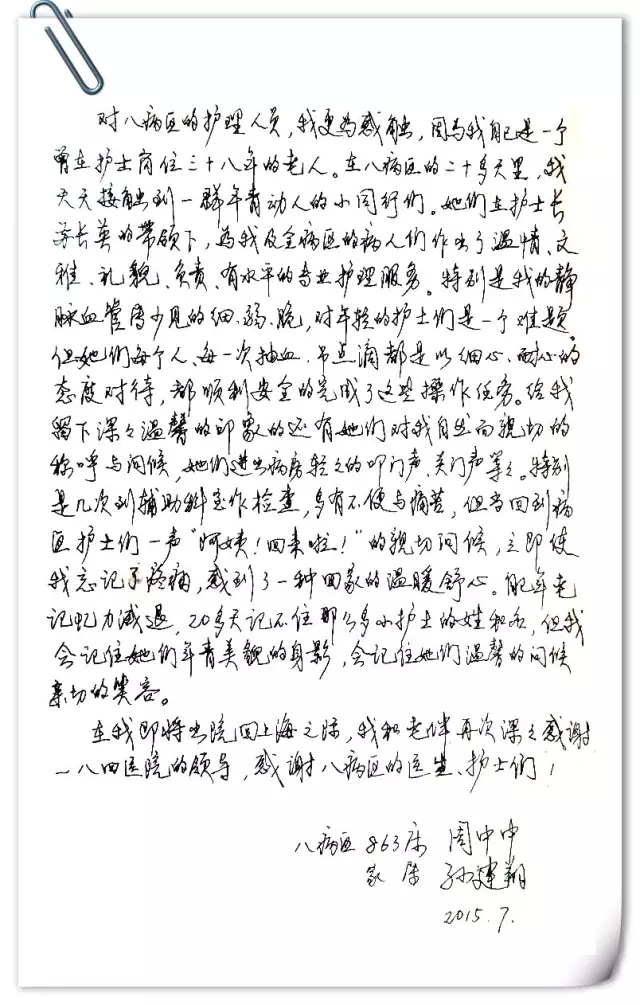 对八病区的护理人员，我更为感触，因为我自己是一个
曾在护士岗位三十八年的老人。在八病区的二十多天里，我
天天接触到一群年青动人的小同行们。她们在护士长
苏长英的带领下，为我及全病区的病人们作出了温情、文
雅、礼貌、负责、有水平的专业护理服务。特别是我的静
脉血管属少见的细、弱、脆，对年轻的护士们是一个难题，
但她们每个人、每一次抽血、吊点滴都是以细心、耐心的
态度对待，都顺利安全的完成了这些操作任务。给我
留下深々温馨的印象的还有她们对我自然而親切的
称呼与问候，她们进出病房轻々的叩门声、关门声等々。特别
是几次到辅助科室作检查，多有不便与痛苦，但当回到病
区护士们一声“阿姨！回来啦！”的親切问候，立即使
我忘记了疼痛，感到了一种回家的温暖舒心。我年老
记忆力减退，20多天记不住那么多小护士的姓和名，但我
会记住她们年青美貌的身影，会记住她们温馨的问候
亲切的笑容。
在我即将出院回上海之际，我和老伴再次深々感谢
一八四医院的领导，感谢八病区的医生、护士们！
八病区 863床 周中中
家属 孙建翔
2015.7.